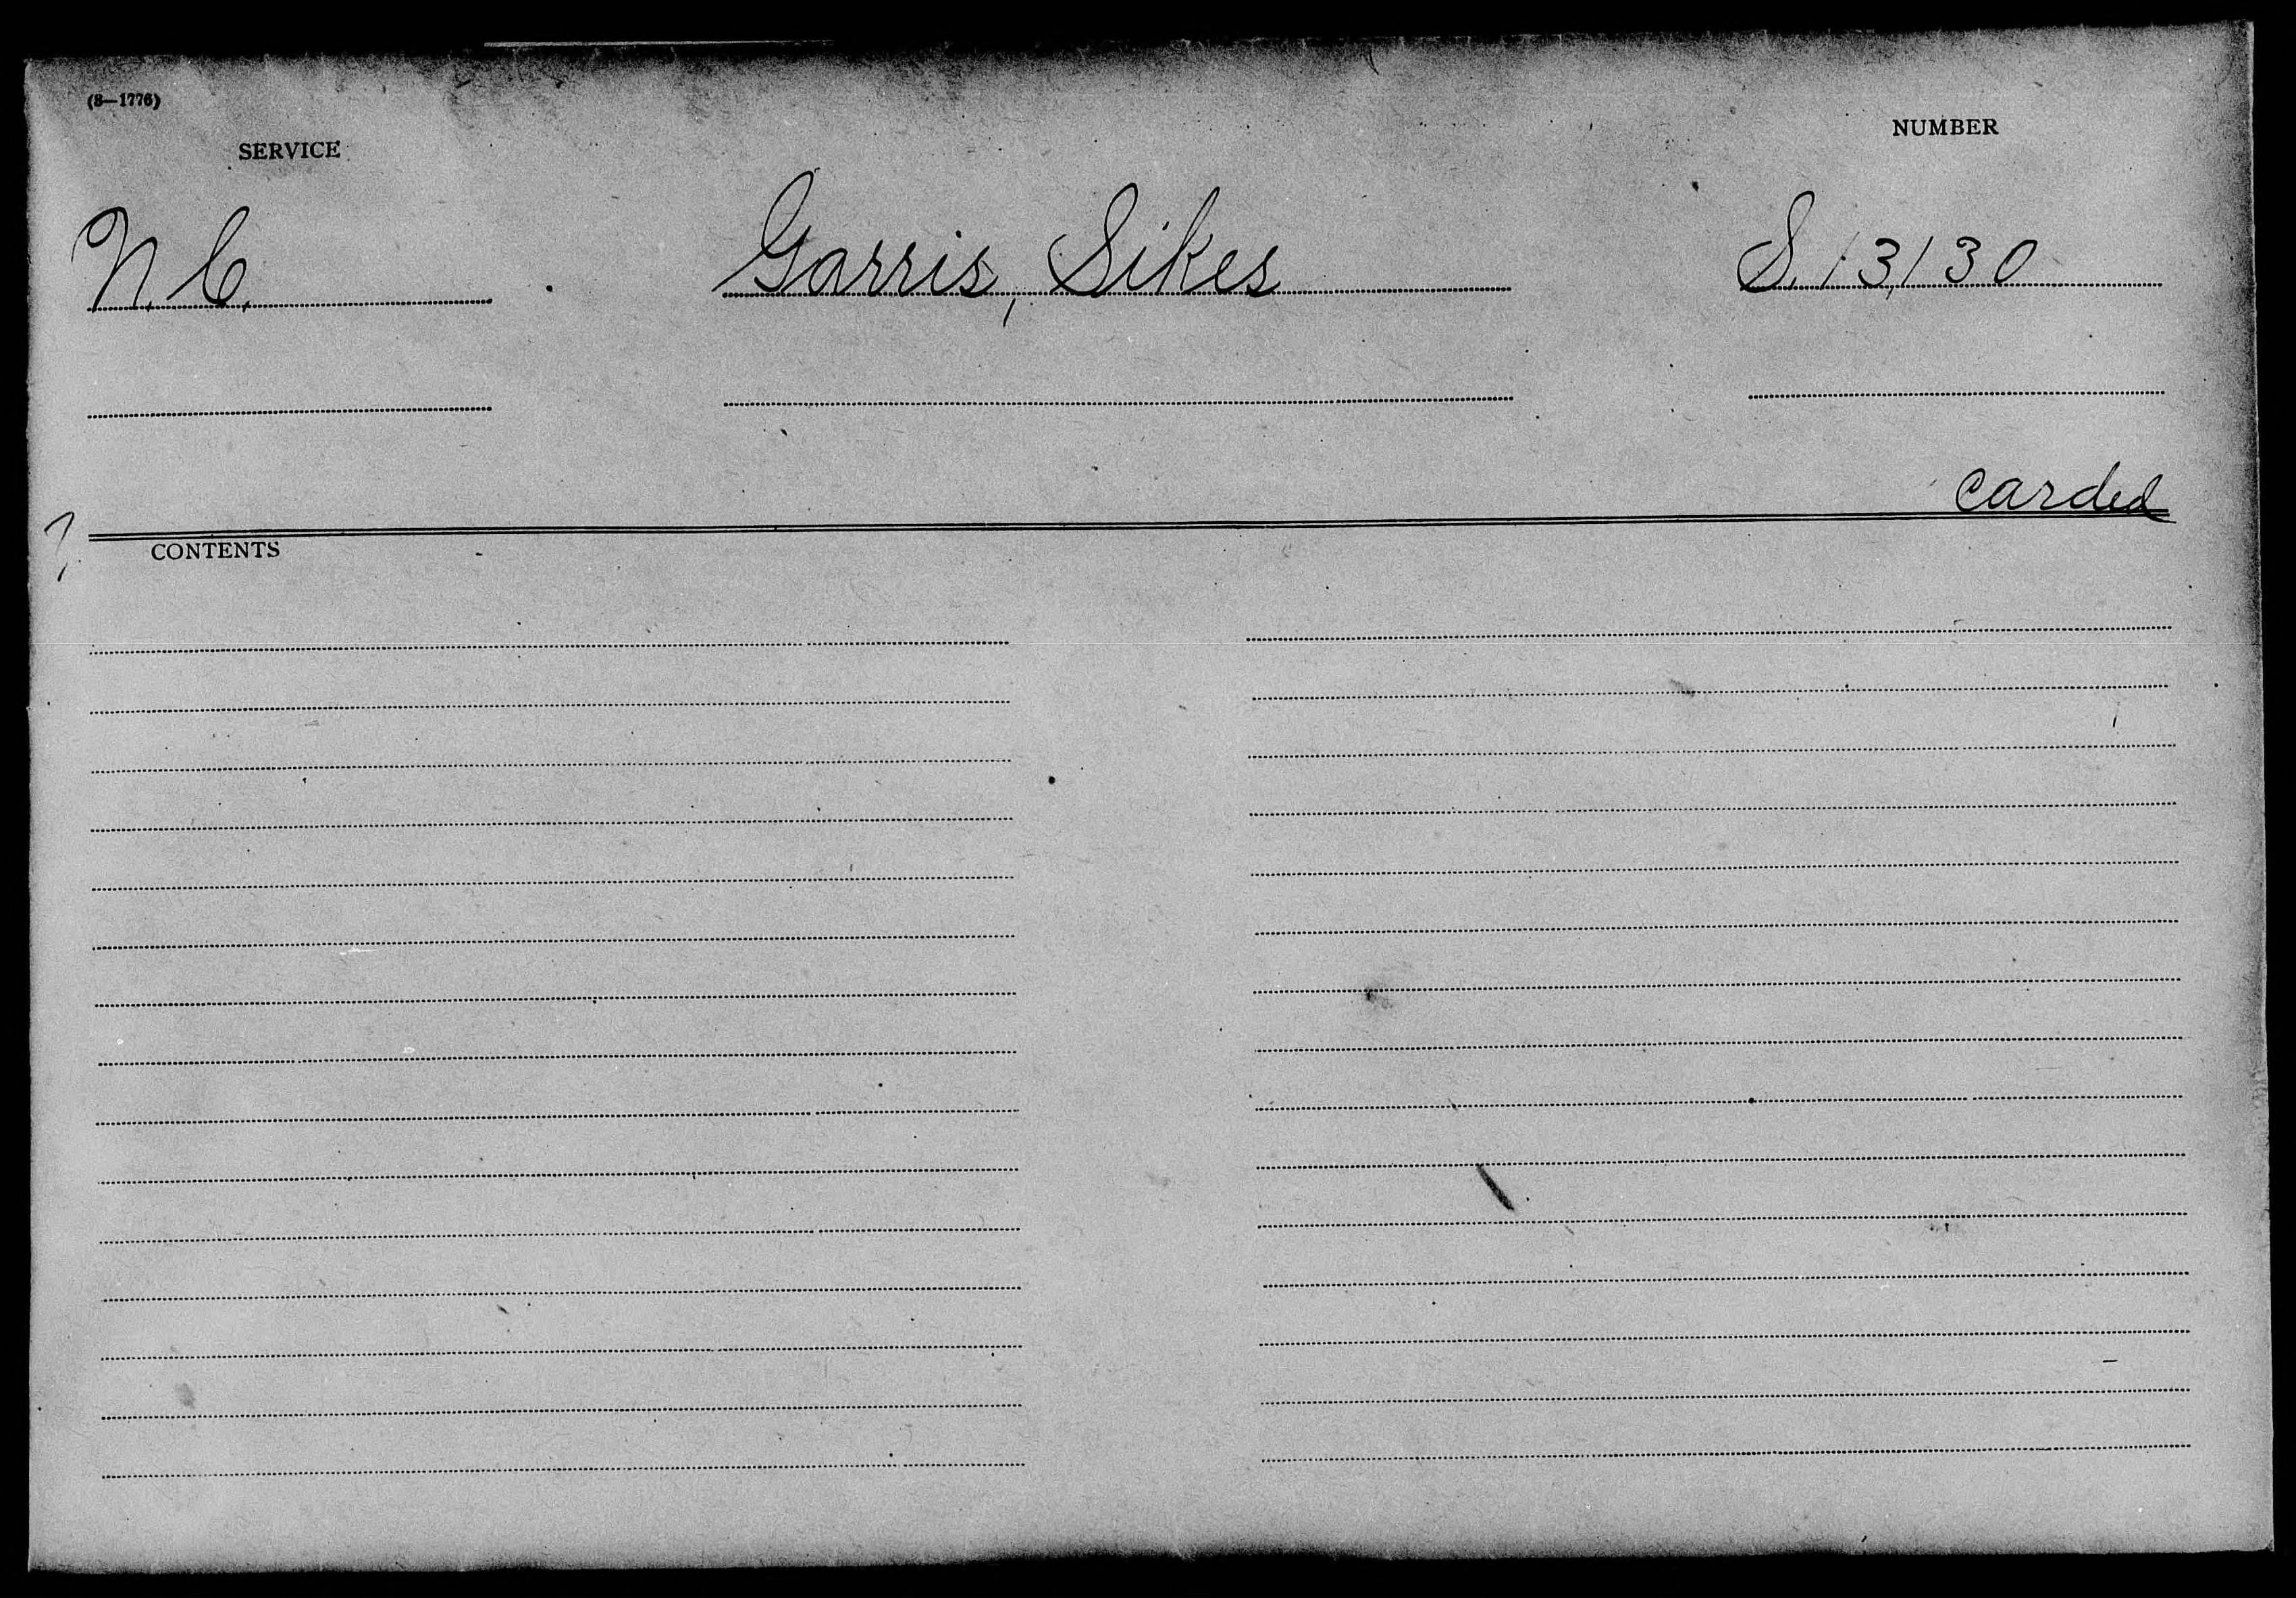 (3—1776)
SERVICE
NUMBER
N.C.
Garris, Sikes
S. 13,130
carded
CONTENTS